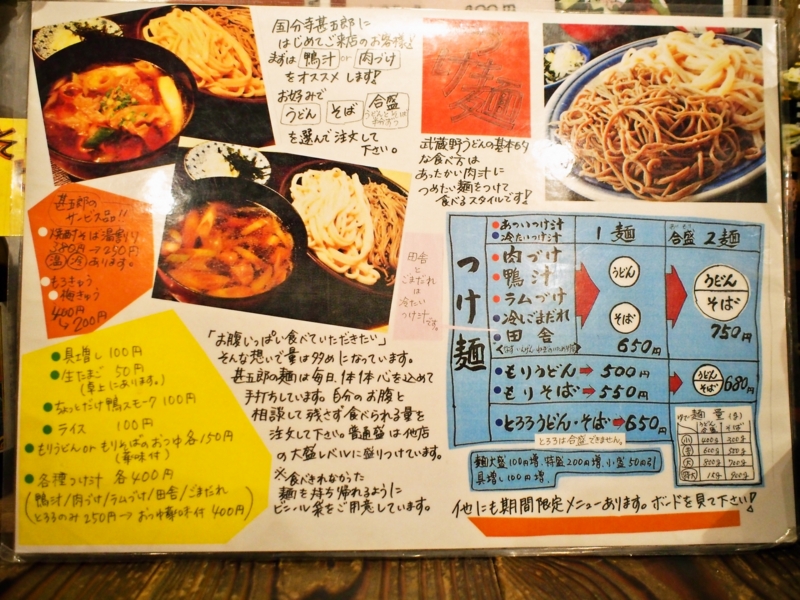 国分寺甚五郎に
はじめてご来店のお客様は
まずは 鴨汁 or 肉づけ
をオススメします!
お好みで
うどん そば 合盛
を選んで注文して
下さい。
つけ麺
武蔵野うどんの基本的
な食べ方は
あったかい肉汁に
つめたい麺をつけて
食べるスタイルです!
甚五郎の
サービス品!!
焼酎そば湯割り
380円→250円
温 冷 あります。
もろきゅう
梅きゅう
400円
↳200円
田舎
と
ごまだれ
は
冷たい
つけ汁
です。
つけ麺
あついつけ汁
冷たいつけ汁
1麺
合盛 2麺
肉づけ
鴨汁
ラムづけ
冷しごまだれ
田舎
うどん
そば
650円
うどん
そば
750円
もりうどん→500円
もりそば→550円
うどん
そば
680円
とろろうどん・そば→650円
とろろは合盛できません。
麺大盛100円増、特盛200円増、小盛50円引
具増し100円増、
ゆで麺量(g)
うどん そば
小
普
大
特大
具増し 100円
生たまご 50円
(卓上にあります。)
ちょっとだけ鴨スモーク 100円
ライス 100円
もりうどん or もりそばのおつゆ 各150円
(薬味付)
各種つけ汁 各400円
(鴨汁/肉づけ/ラムづけ/田舎/ごまだれ
とろろのみ250円→おつゆ薬味付400円)
「お腹いっぱい食べていただきたい」
そんな想いで量は多めになっています。
甚五郎の麺は毎日、1本1本心を込めて
手打ちしています。自分のお腹と
相談して残さず食べられる量を
注文して下さい。普通盛は他店
の大盛レベルに盛りつけています。
※食べきれなかった
麺を持ち帰れるように
ビニール袋をご用意しています。
他にも期間限定メニューあります。ボードを見て下さい!